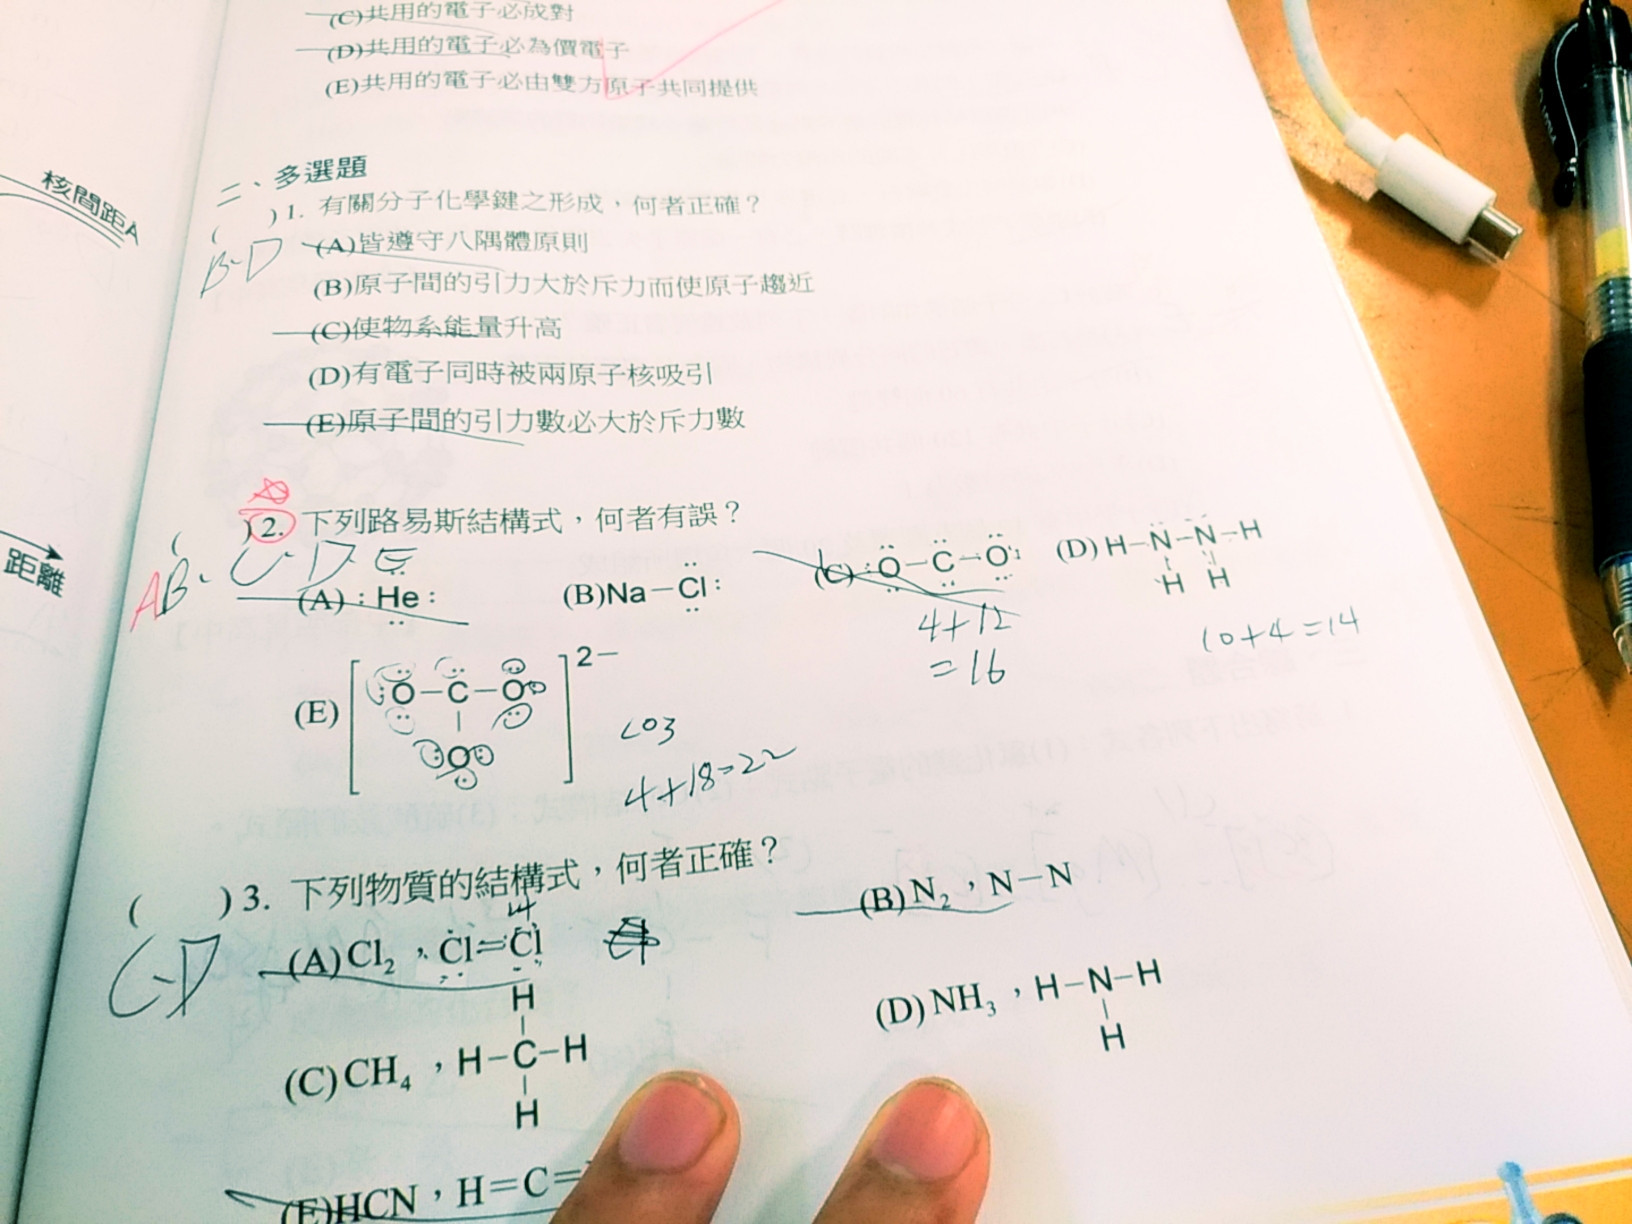 (C)共用的電子必成對
(D)共用的電子必為價電子
(E)共用的電子必由雙方原子共同提供
核間距A
距離
二、多選題
( ) 1. 有關分子化學鍵之形成，何者正確？
B、D
(A)皆遵守八隅體原則
(B)原子間的引力大於斥力而使原子趨近
(C)使物系能量升高
(D)有電子同時被兩原子核吸引
(E)原子間的引力數必大於斥力數
( ) 2. 下列路易斯結構式，何者有誤？
AB、C、D、E
(A) :He: (B)Na－Cl: (C) :O－C－O: (D) H－N－N－H
H H
4+12
=16
10+4=14
(E) [O－C－O]2－
O
CO3
4+18=22
( ) 3. 下列物質的結構式，何者正確？
C、D
14
(A)Cl2，Cl=Cl (B)N2，N－N
(C)CH4，H－C－H (D)NH3，H－N－H
H
H
H
(E)HCN，H=C=